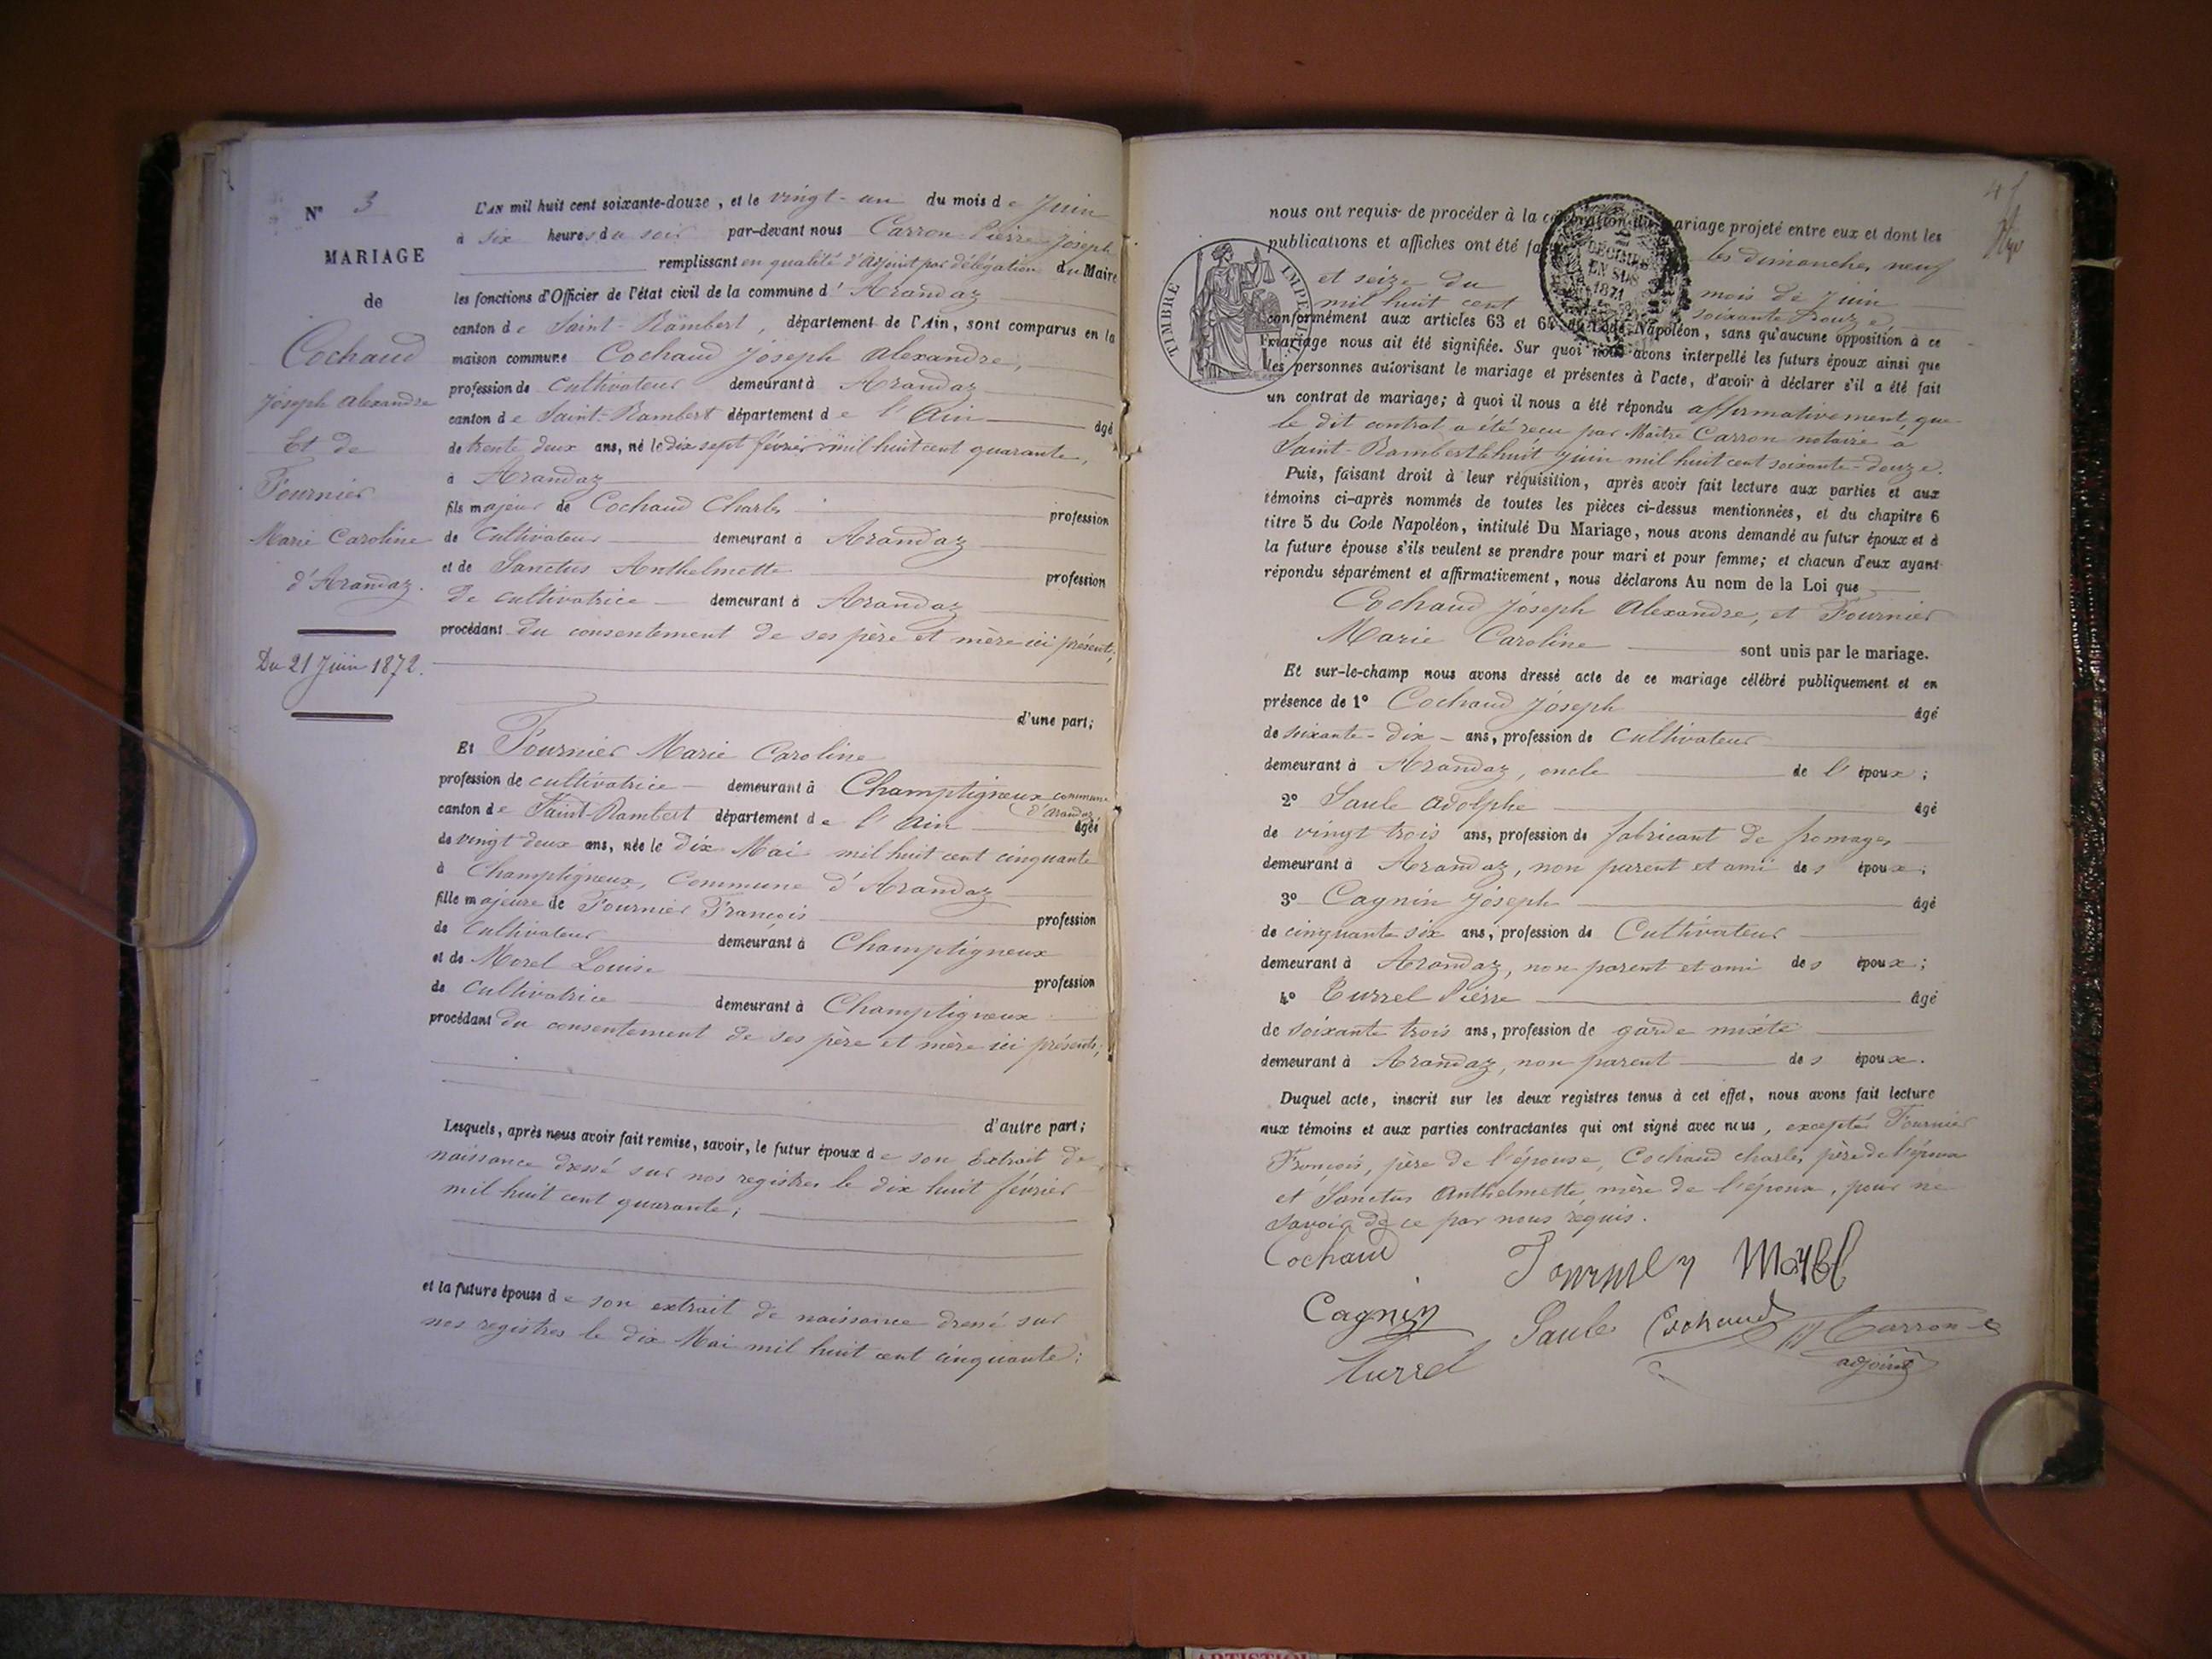 N° 3
MARIAGE
de
Cochaud
Joseph Alexandre
Et de
Fournier
Marie Caroline
d'Arandaz.
Du 21 Juin 1872.
L'AN mil huit cent soixante-douze, et le vingt-un du mois de Juin
à six heures du soir par-devant nous Carron Pierre Joseph
remplissant en qualité d'Adjoint par délégation du Maire
les fonctions d'Officier de l'état civil de la commune d'Arandaz
canton de Saint-Rambert, département de l'Ain, sont comparus en la
maison commune Cochaud Joseph Alexandre,
profession de cultivateur demeurant à Arandaz
canton de Saint-Rambert département de l'Ain âgé
de trente deux ans, né le dix sept février mil huit cent quarante,
à Arandaz
fils majeur de Cochaud Charles profession
de Cultivateur demeurant à Arandaz
et de Sanctus Anthelmette profession
de cultivatrice demeurant à Arandaz
procédant du consentement de ses père et mère ici présents;
d'une part;
Et Fournier Marie Caroline
profession de cultivatrice demeurant à Champtigneux commune
d'Arandaz
canton de Saint-Rambert département de l'Ain âgée
de vingt deux ans, née le dix Mai mil huit cent cinquante
à Champtigneux, Commune d'Arandaz
fille majeure de Fournier François profession
de Cultivateur demeurant à Champtigneux
et de Morel Louise profession
de Cultivatrice demeurant à Champtigneux
procédant du consentement de ses père et mère ici présents;
d'autre part;
Lesquels, après nous avoir fait remise, savoir, le futur époux de son Extrait de
naissance dressé sur nos registres le dix huit février
mil huit cent quarante;
et la future épouse de son extrait de naissance dressé sur
nos registres le dix Mai mil huit cent cinquante;
nous ont requis de procéder à la célébration du mariage projeté entre eux et dont les
publications et affiches ont été les dimanches neuf
et seize du mois de Juin
mil huit cent soixante douze
TIMBRE IMPÉRIAL
DÉCIMES
EN SUS
1871
conformément aux articles 63 et 64 du Code Napoléon, sans qu'aucune opposition à ce
mariage nous ait été signifiée. Sur quoi nous avons interpellé les futurs époux ainsi que
les personnes autorisant le mariage et présentes à l'acte, d'avoir à déclarer s'il a été fait
un contrat de mariage; à quoi il nous a été répondu affirmativement, que
le dit contrat a été reçu par Maître Carron notaire à
Saint-Rambert le huit Juin mil huit cent soixante-douze.
Puis, faisant droit à leur réquisition, après avoir fait lecture aux parties et aux
témoins ci-après nommés de toutes les pièces ci-dessus mentionnées, et du chapitre 6
titre 5 du Code Napoléon, intitulé Du Mariage, nous avons demandé au futur époux et à
la future épouse s'ils veulent se prendre pour mari et pour femme; et chacun d'eux ayant
répondu séparément et affirmativement, nous déclarons Au nom de la Loi que
Cochaud Joseph Alexandre, et Fournier
Marie Caroline sont unis par le mariage.
Et sur-le-champ nous avons dressé acte de ce mariage célébré publiquement et en
présence de 1° Cochaud Joseph âgé
de soixante-dix ans, profession de Cultivateur
demeurant à Arandaz, oncle de l'époux;
2° Saule Adolphe âgé
de vingt trois ans, profession de fabricant de fromages
demeurant à Arandaz, non parent et ami des époux;
3° Cagnin Joseph âgé
de cinquante six ans, profession de Cultivateur
demeurant à Arandaz, non parent et ami des époux;
4° Turrel Pierre âgé
de soixante trois ans, profession de garde mixte
demeurant à Arandaz, non parent des époux.
Duquel acte, inscrit sur les deux registres tenus à cet effet, nous avons fait lecture
aux témoins et aux parties contractantes qui ont signé avec nous, excepté Fournier
François, père de l'épouse, Cochaud Charles père de l'époux
et Sanctus Anthelmette, mère de l'époux, pour ne
savoir de ce par nous requis.
Cochaud Fournier Morel
Cagnin Saule Cochaud Carron
Turrel adjoint